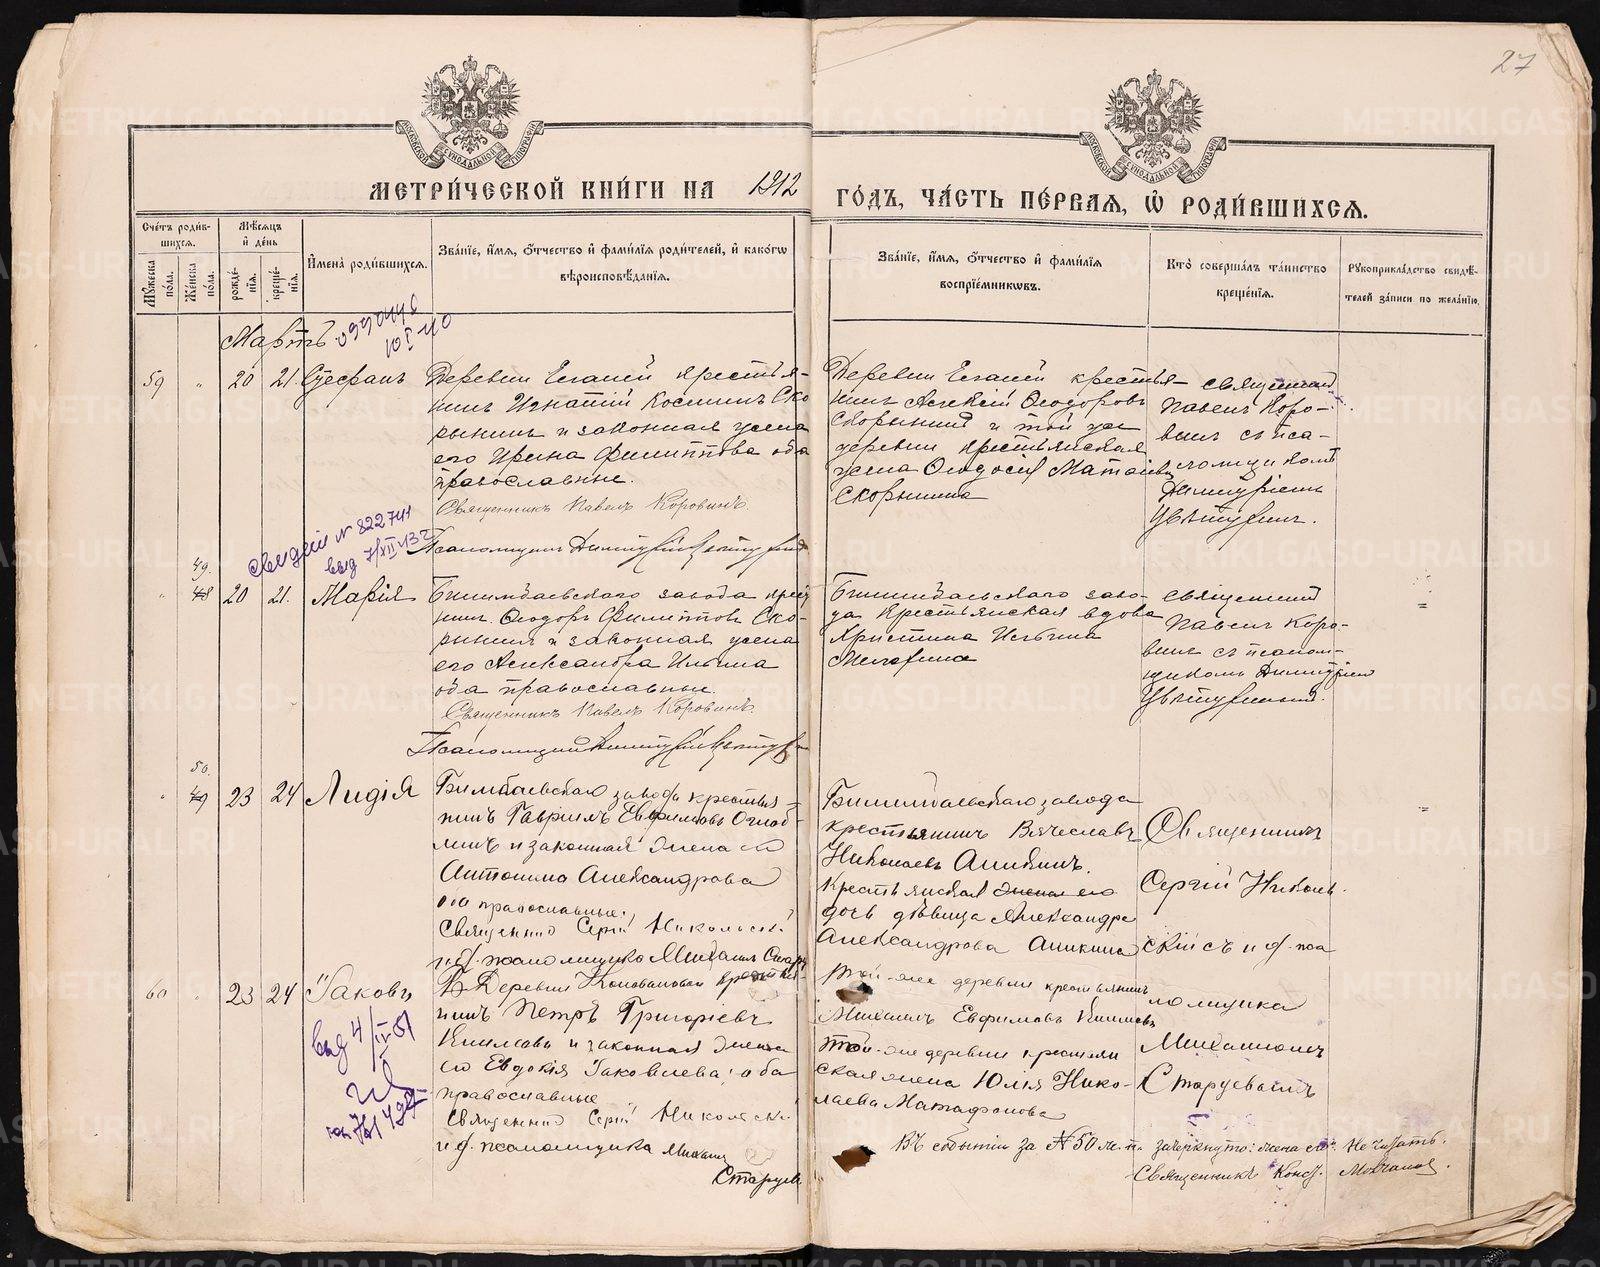 27
МЕТРИ́ЧЕСКОЙ КНИ́ГИ НА 1912 ГО́ДЪ, ЧА́СТЬ ПЕ́РВАЯ, Ѽ РОДИ́ВШИХСЯ.
Сче́тъ роди́в-
шихся.
Мѣ́сяцъ
и҆ де́нь
Мꙋ́жеска
по́ла.
Же́нска
по́ла.
рожде́-
нїя.
креще́-
нїя.
И҆мена̀ роди́вшихся.
Зва́нїе, и҆́мя, о҆́тчество и҆ фами́лїя роди́телей, и҆ како́гѡ
вѣроисповѣ́данїя.
Зва́нїе, и҆́мя, о҆́тчество и҆ фами́лїя
воспрїе́мникѡвъ.
Кто̀ соверша́лъ та́инство
креще́нїя.
Рꙋкоприкла́дство свидѣ́-
телей за́писи по жела́нїю.
Мартъ
59 " 20 21 Стефанъ
Деревни Еланей крестья-
нинъ Игнатій Косминъ Ско
рынинъ и законная жена
его Ирина Филиппова оба
православные.
Священникъ Павелъ Коровинъ.
Псаломщикъ Димитрій
Деревни Еланей крестья-
нинъ Алексій Ѳеодоровъ
Скорынинъ и той же
деревни крестьянская
жена Ѳеодосія
Скорынина
Священникъ
Павелъ Коро-
винъ съ пса-
ломщикомъ
Димитріемъ
свидет N 822741
выд 7/XII-32
49.
" 48 20 21. Марія
Билимбаевскаго завода крест
нинъ Ѳеодоръ Филипповъ Ско-
рынинъ и законная жена
его Александра Ильина
оба православные.
Священникъ Павелъ Коровинъ.
Псаломщикъ Димитрій
Билимбаевскаго заво-
да крестьянская вдова
Христина Ильина
Священникъ
Павелъ Коро-
винъ съ псалом-
щикомъ Димитріемъ
50.
" 49 23 24 Лидія
Билимбаевскаго завода крестья-
нинъ Гавріилъ Евфимовъ
и законная жена его
Антонина Александрова
оба православные.
Священникъ Сергій Никольскій
и. д. псаломщика Михаилъ
Билимбаевскаго завода
крестьянинъ Вячеславъ
Николаевъ Аникинъ.
Крестьянская жена его
дочь дѣвица Александра
Александрова Аникина
Священникъ
Сергій Николь-
скій съ и. д. пса
ломщика
Михаиломъ
60 " 23 24 Іаковъ
Деревни Коноваловой крестья-
нинъ Петръ Григорьевъ
и законная жена
его Евдокія Іаковлева; оба
православные
Священникъ Сергій Никольскій
и. д. псаломщика Михаилъ
выд 4/IV-51
Той-же деревни крестьянинъ
Михаилъ Евфимовъ
Той-же деревни крестьян
ская жена Юлія Нико-
лаева
Въ событіи за № 50 ж. п. зачеркнуто: жена его. Не читать.
Священникъ Конст.